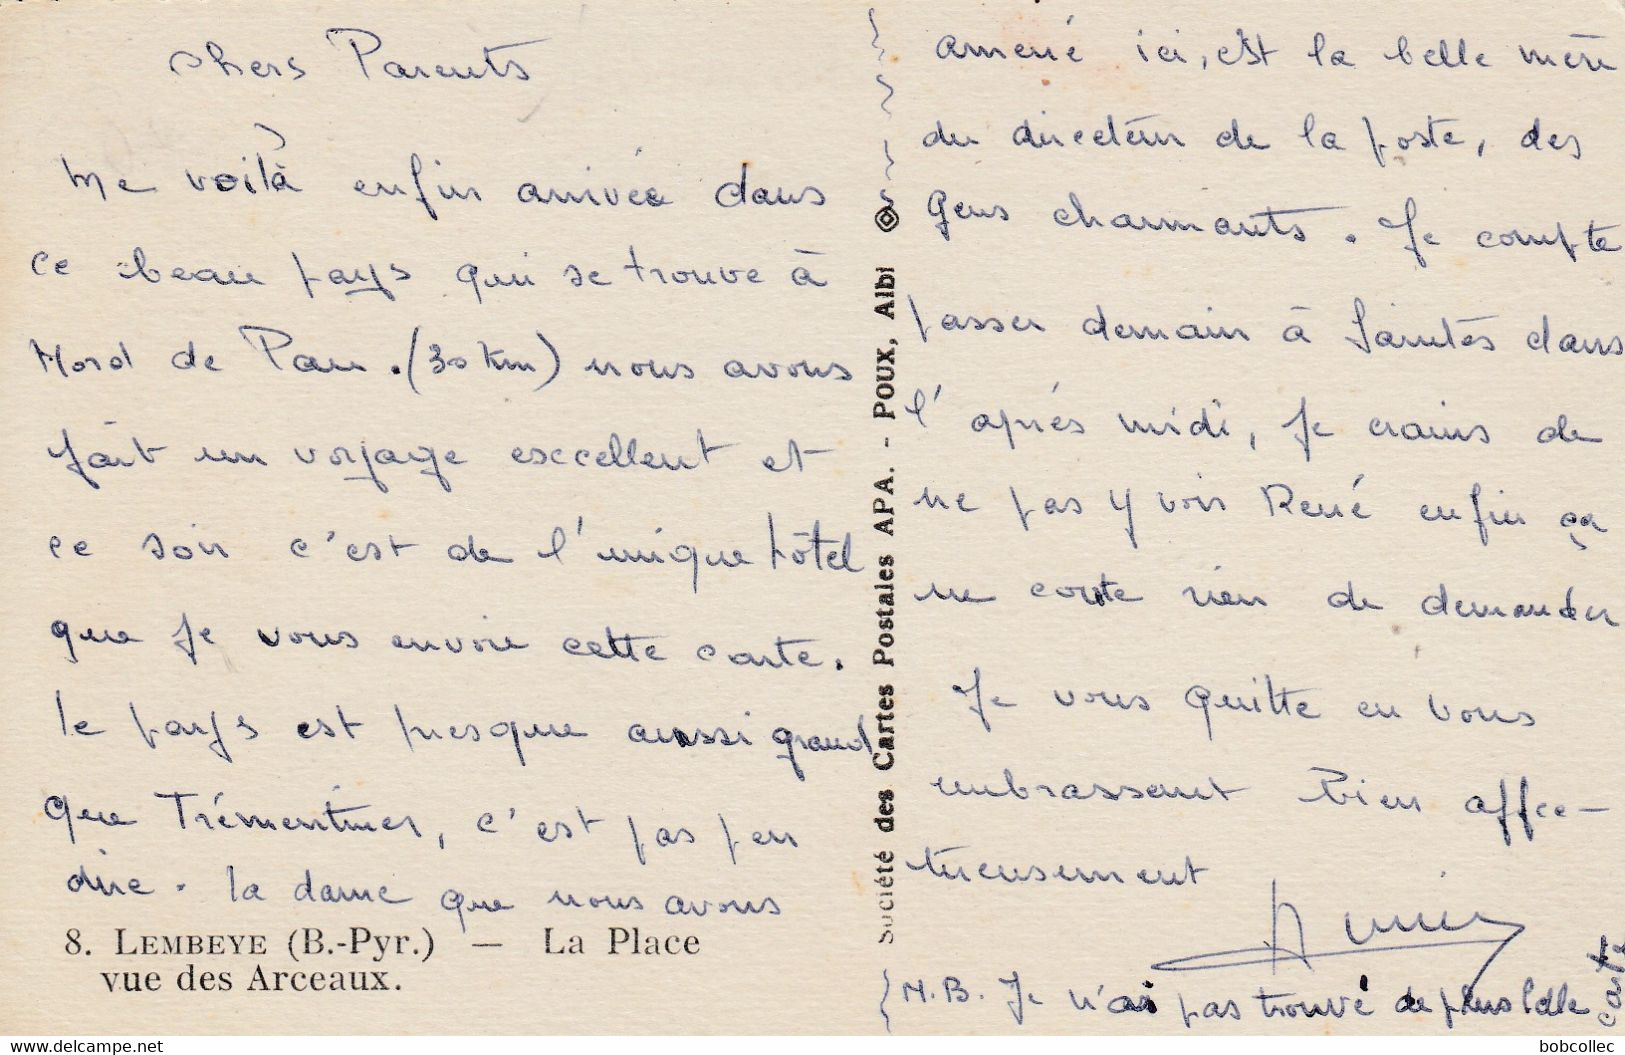 chers Parents
Me voilà enfin arrivée dans
ce beau pays qui se trouve à
Nord de Pau. (30 km) nous avons
fait un voyage excellent et
ce soir c'est de l'unique hôtel
que je vous envoie cette carte.
le pays est presque aussi grand
que Trémentines, c'est pas peu
dire. la dame que nous avons
8. LEMBEYE (B.-Pyr.) — La Place
vue des Arceaux.
Société des Cartes Postales APA. - POUX, Albi
amené ici, c'est la belle mère
du directeur de la poste, des
gens charmants. Je compte
passer demain à Saintes dans
l'après midi, Je crains de
ne pas y voir René enfin ça
ne coute rien de demander
Je vous quitte en vous
embrassant bien affec-
tueusement
N.B. Je n'ai pas trouvé de plus belle
carte
bobcollec